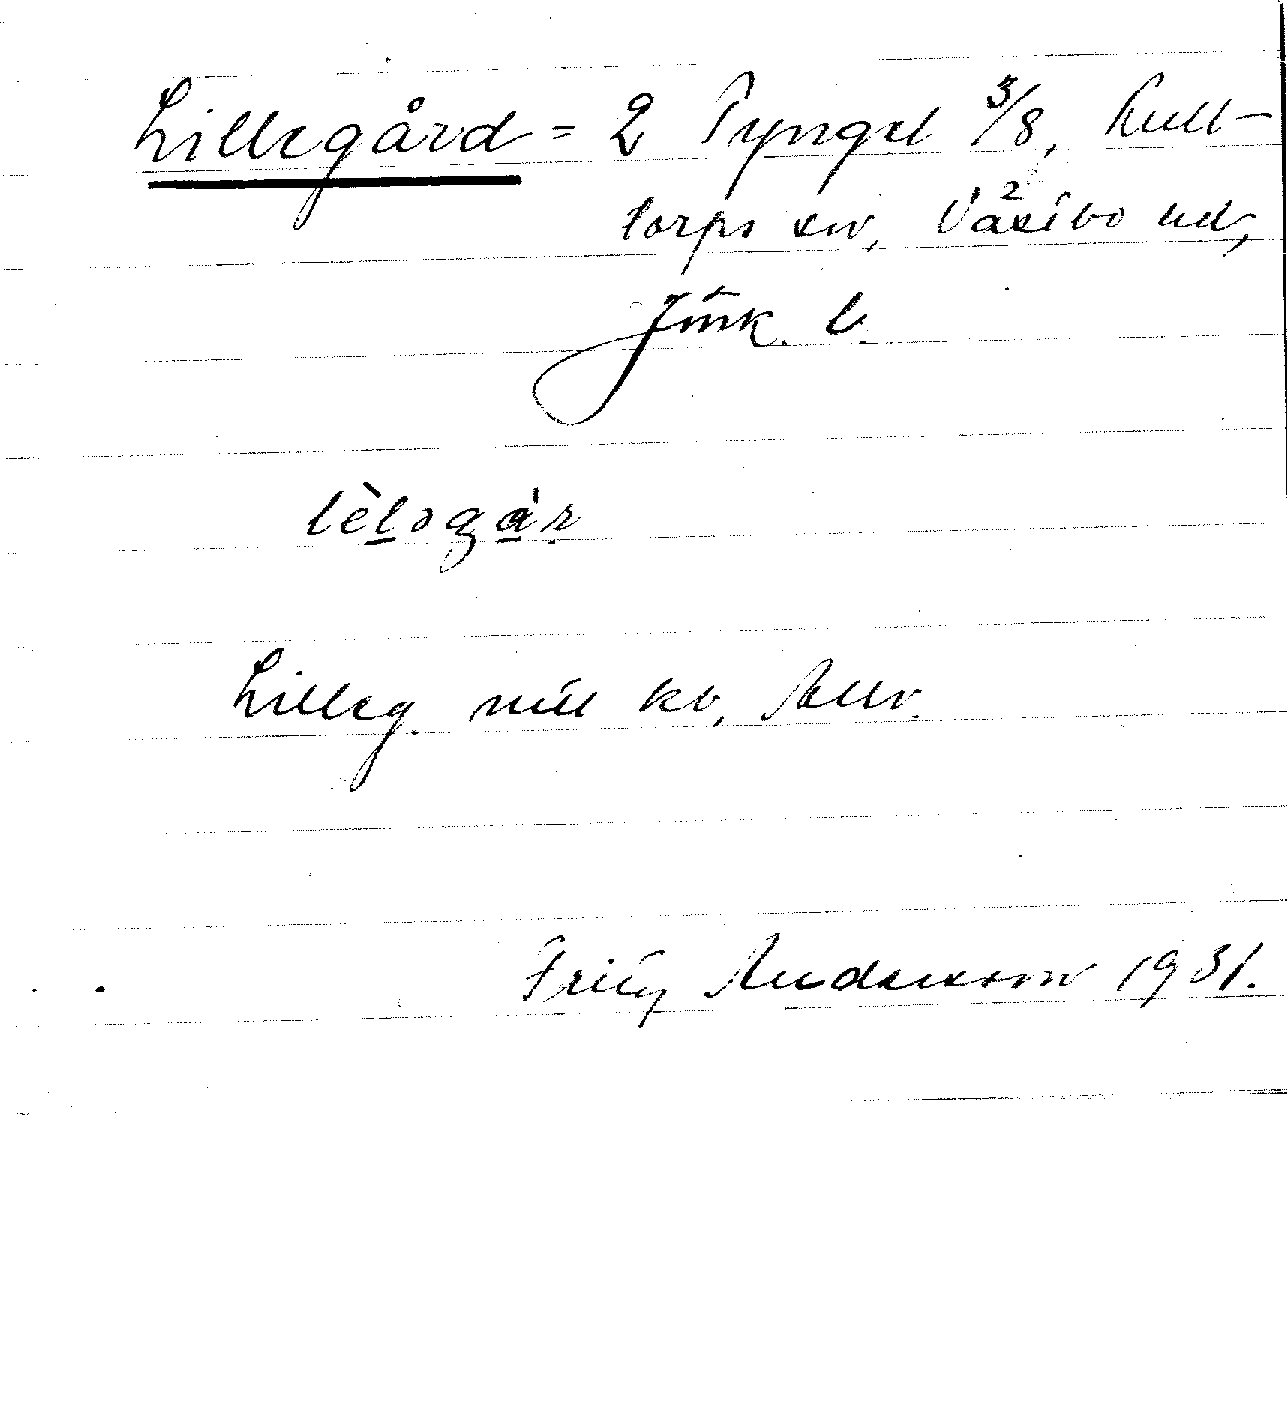 Lillegård = 2 Pyngel 3/8, Kull-
torps sn, Västbo hd,
Jönk. l.
lèləgár
Lilleg. mtl kb, Allm.
Fritz Andersson 1931.